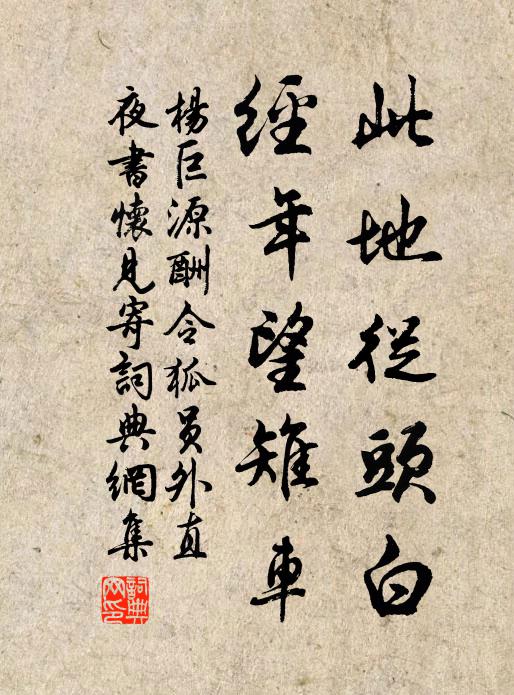 此地從頭白
經年望雉車
楊巨源酬令狐員外直
夜書懷見寄詞典網集
詞典網印